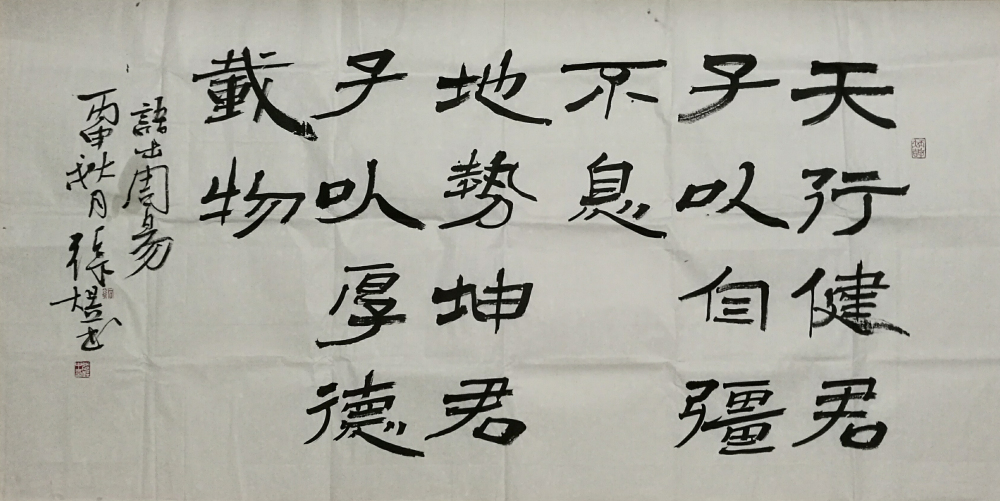 天行健君
子以自彊
不息
地勢坤君
子以厚德
載物
語出周易
丙申秋月張煜書